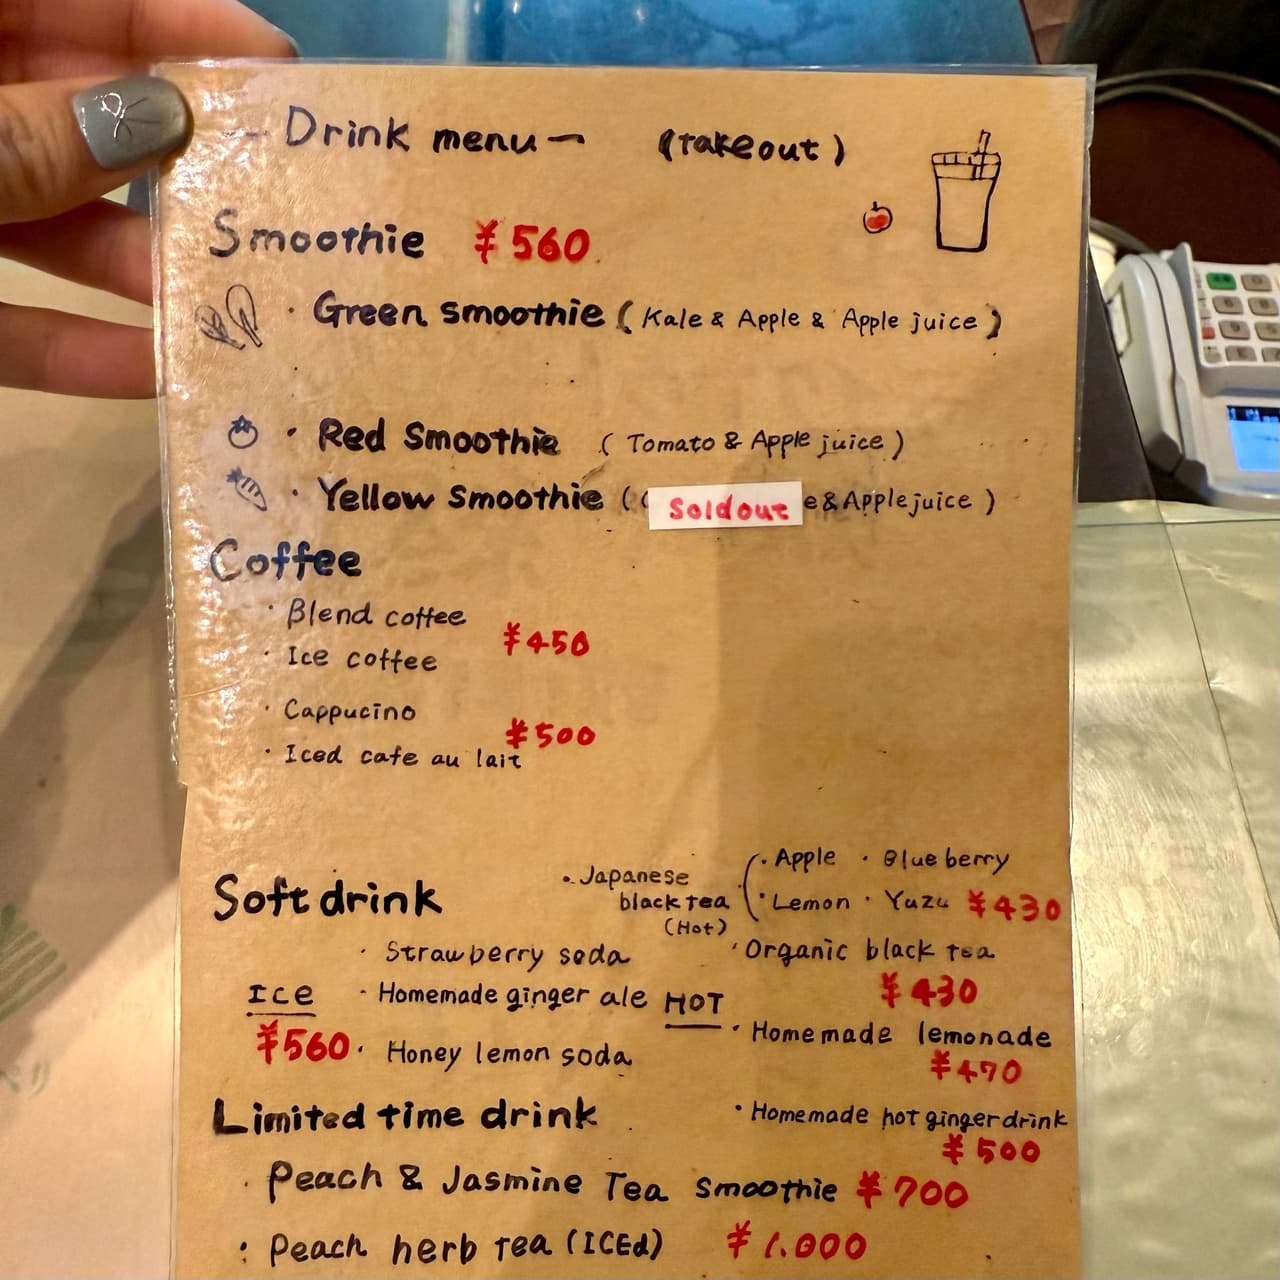 Drink menu (Takeout)
Smoothie ¥560
・Green smoothie (Kale & Apple & Apple juice)
・Red Smoothie (Tomato & Apple juice)
・Yellow Smoothie ( Sold out e & Apple juice )
Coffee
・Blend coffee
・Ice coffee
¥450
・Cappucino
・Iced cafe au lait
¥500
Soft drink
ICE
¥560
・Strawberry soda
・Homemade ginger ale
・Honey lemon soda
HOT
・Japanese
black tea
(Hot)
・Apple ・Blueberry
・Lemon ・Yuzu ¥430
・Organic black tea
¥430
・Homemade lemonade
¥470
・Homemade hot ginger drink
¥500
Limited time drink
・Peach & Jasmine Tea Smoothie ¥700
・Peach herb tea (ICEd) ¥1.000